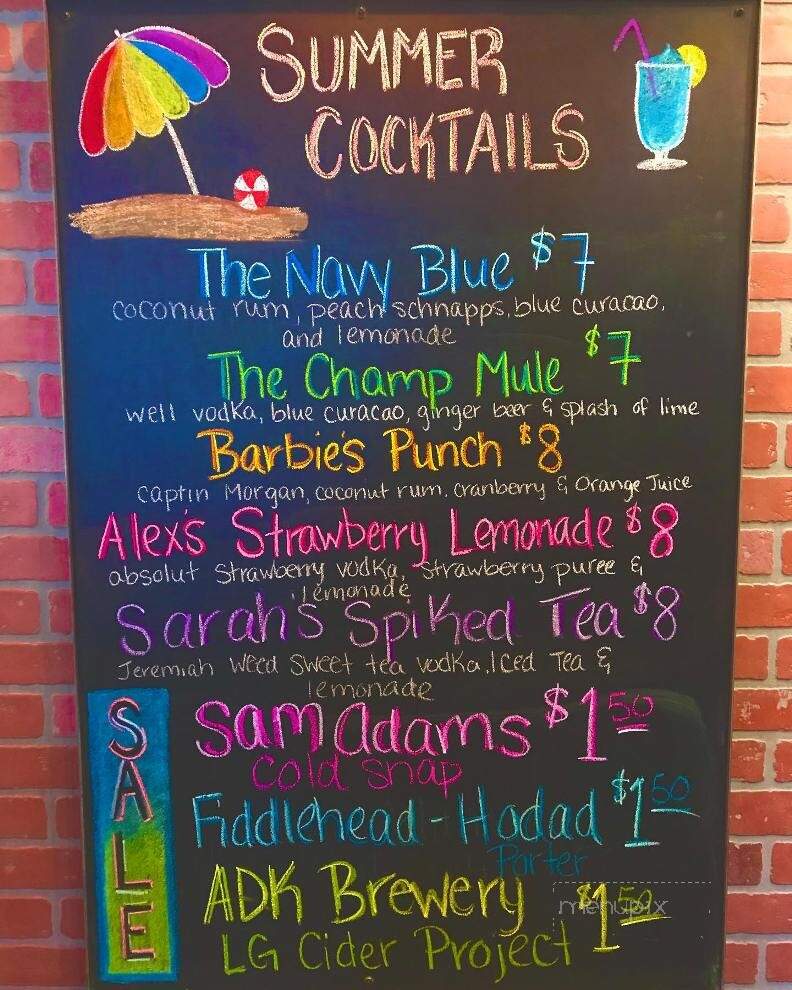 SUMMER
COCKTAILS
The Navy Blue $7
coconut rum, peach schnapps, blue curacao,
and lemonade
The Champ Mule $7
well vodka, blue curacao, ginger beer & splash of lime
Barbie's Punch $8
Captin Morgan, coconut rum, cranberry & Orange Juice
Alex's Strawberry Lemonade $8
absolut strawberry vodka, strawberry puree &
lemonade
Sarah's Spiked Tea $8
Jeremiah Weed Sweet tea vodka, Iced Tea &
lemonade
SALE
Sam Adams $1 50
Cold Snap
Fiddlehead - Hodad $1 50
Porter
ADK Brewery $1 50
menupix
LG Cider Project